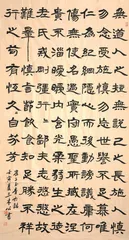 無道人之短無說己之長施人慎
勿念受施慎勿忘世譽不足慕唯
仁為紀綱隱心而後動謗議庸何
傷無使名過實守愚聖所臧在涅
貴不緇曖曖內含光柔弱生之徒
老氏誡剛強行行鄙夫志悠悠故
難量慎言節飲食知足勝不祥
行之苟有恆久久自芬芳